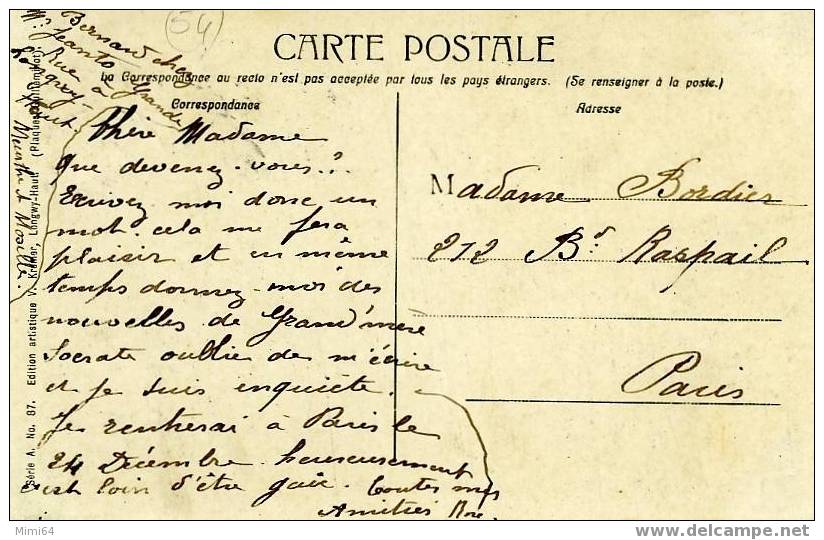 54
Bernard chez
Mr Jeanto
Rue Grande
à
Longwy-
Haut.
Meurthe et Moselle.
CARTE POSTALE
La Correspondance au recto n'est pas acceptée par tous les pays étrangers. (Se renseigner à la poste.)
Correspondance
Adresse
Chère Madame
Que devenez-vous??
Ecrivez moi donc un
mot. cela me fera
plaisir et en même
temps donnez-moi des
nouvelles de Grand'mère
Socrate oublie de m'écrire
et je suis inquiète.
Je rentrerai à Paris le
24 Décembre heureusement
c'est loin d'être gai. Toutes mes
Amitiés
Madame Bordier
212 Bd Raspail
Paris
Série A. No. 87. Edition artistique V. Kremer, Longwy-Haut
Mimi64
www.delcampe.net